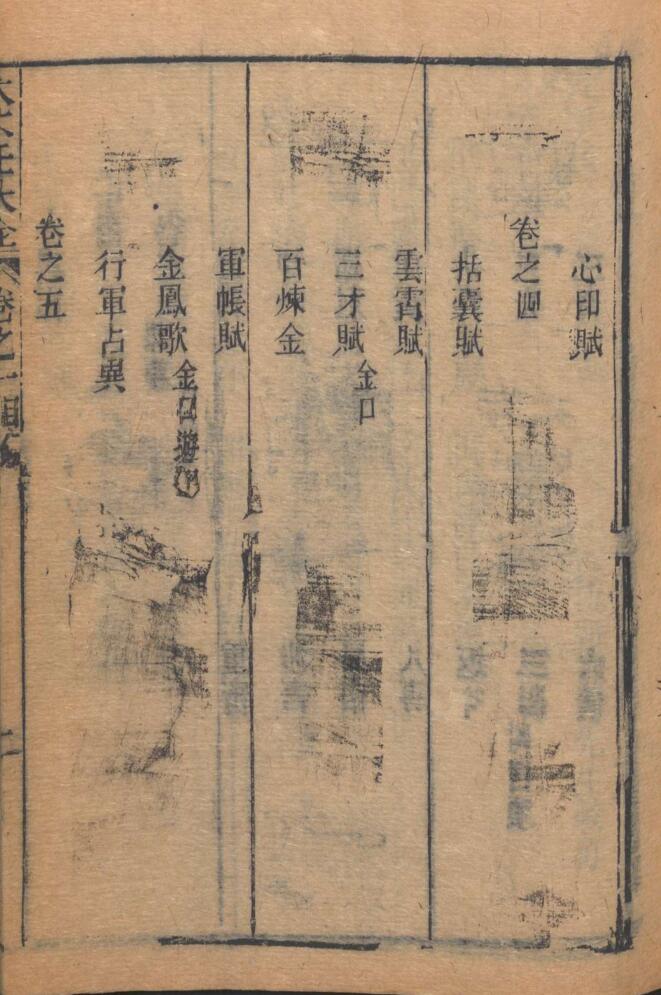 心印賦
卷之四
括囊賦
雲霄賦
三才賦 金口
百煉金
軍帳賦
金鳳歌 金口遊
行軍占異
卷之五
壬大全 卷之一 目